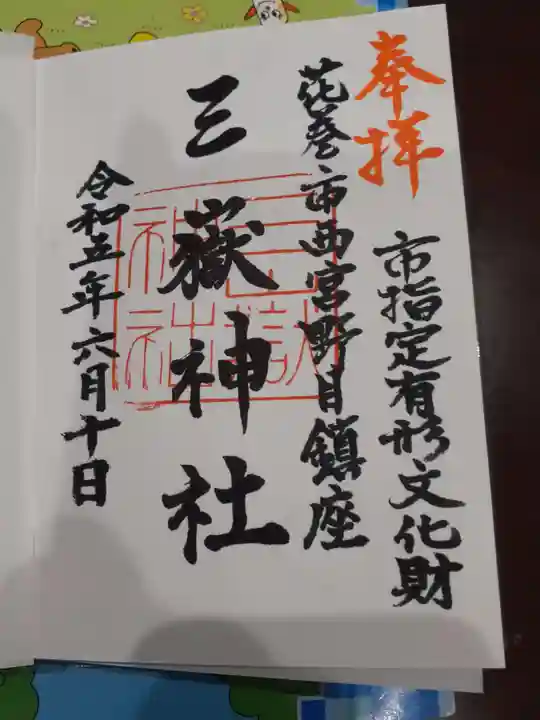 奉拝
市指定有形文化財
花巻市西宮野目鎮座
三嶽神社
三嶽神社
令和五年六月十日